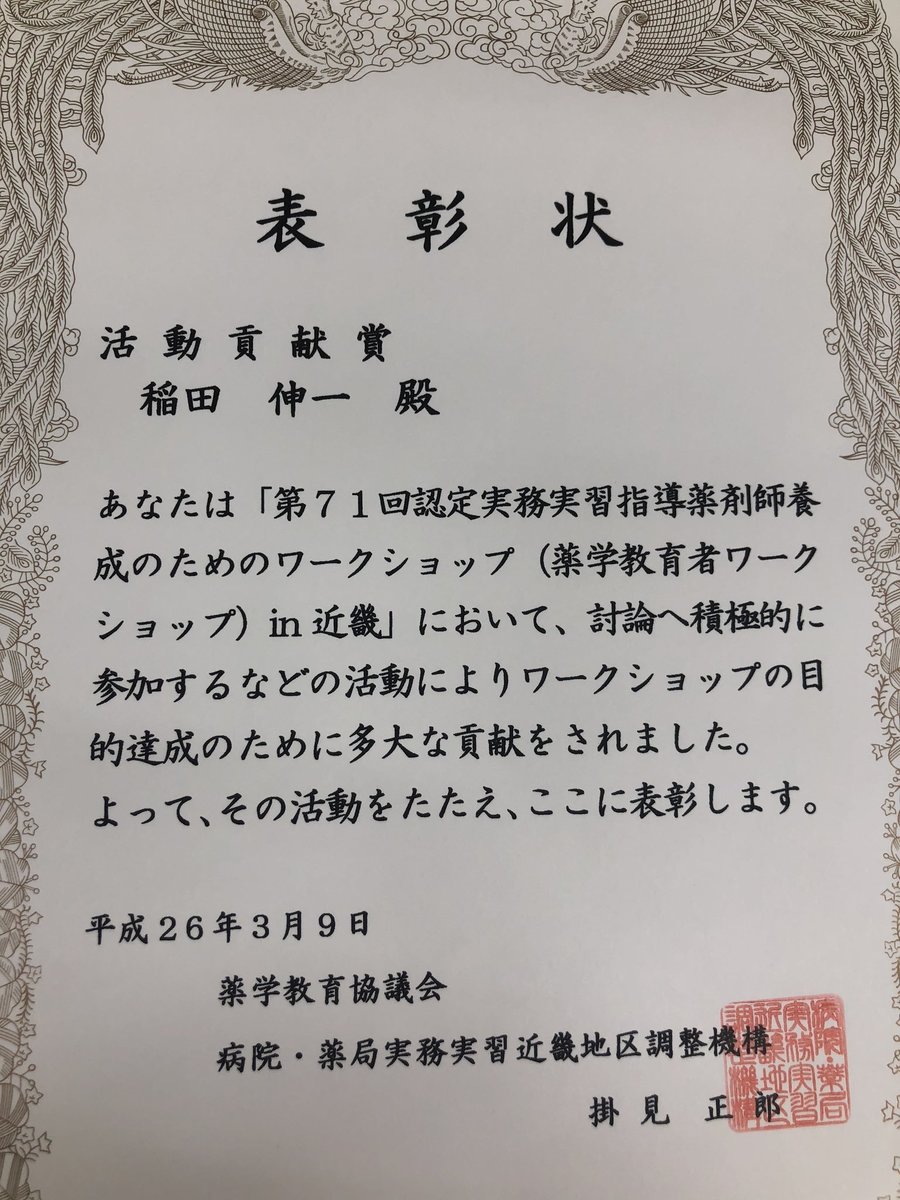 表彰状
活動貢献賞
稲田 伸一 殿
あなたは「第７１回認定実務実習指導薬剤師養
成のためのワークショップ（薬学教育者ワーク
ショップ）in近畿」において、討論へ積極的に
参加するなどの活動によりワークショップの目
的達成のために多大な貢献をされました。
よって、その活動をたたえ、ここに表彰します。
平成２６年３月９日
薬学教育協議会
病院・薬局実務実習近畿地区調整機構
掛見 正郎
病院・薬局
実務実習
近畿地区
調整機構